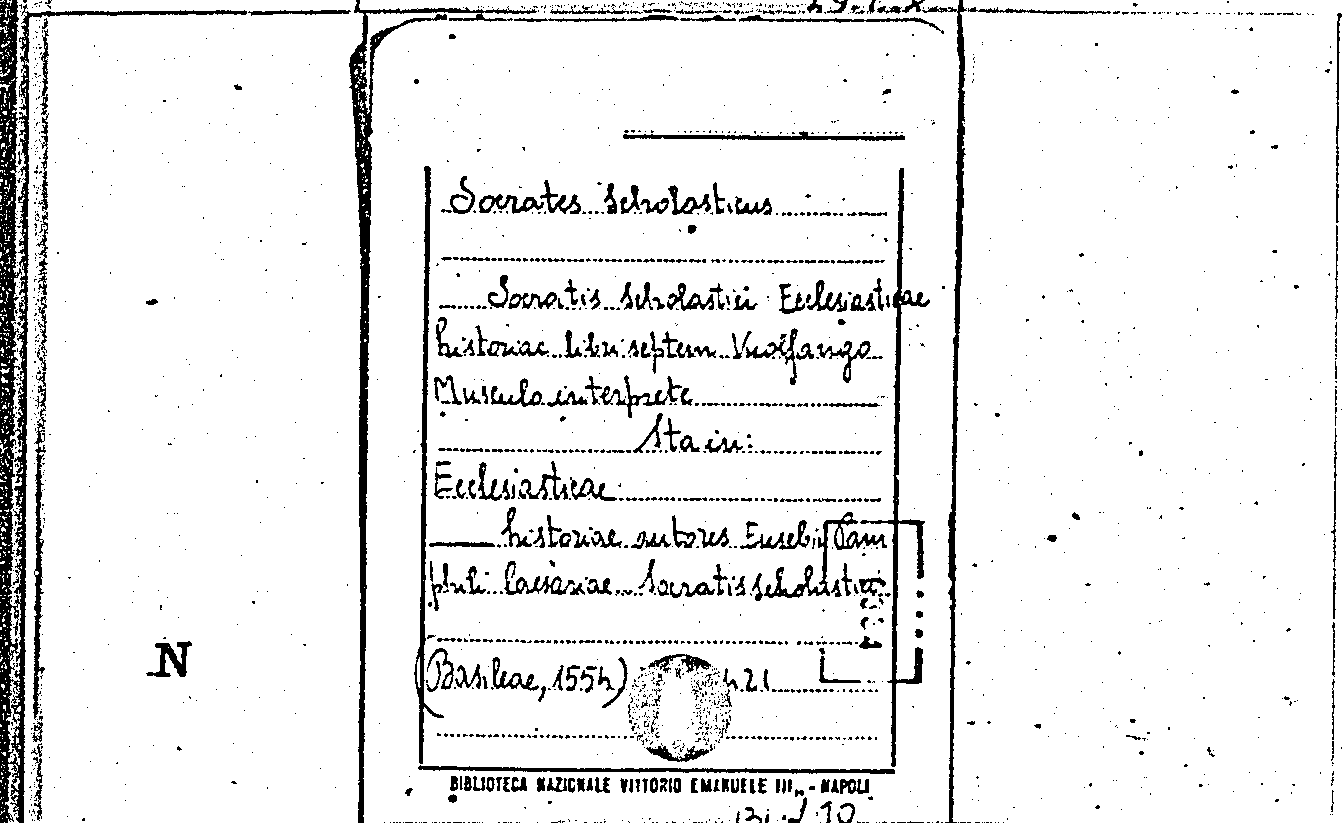 Socrates Scholasticus
Socratis Scholastici Ecclesiasticae
historiae libri septem Vuolfango
Musculo interprete
Sta in:
Ecclesiasticae
historiae autores Eusebii Pam
phili Caesariae Socratis Scholastici
N
(Basileae, 1554)
BIBLIOTECA NAZIONALE VITTORIO EMANUELE III,, - NAPOLI